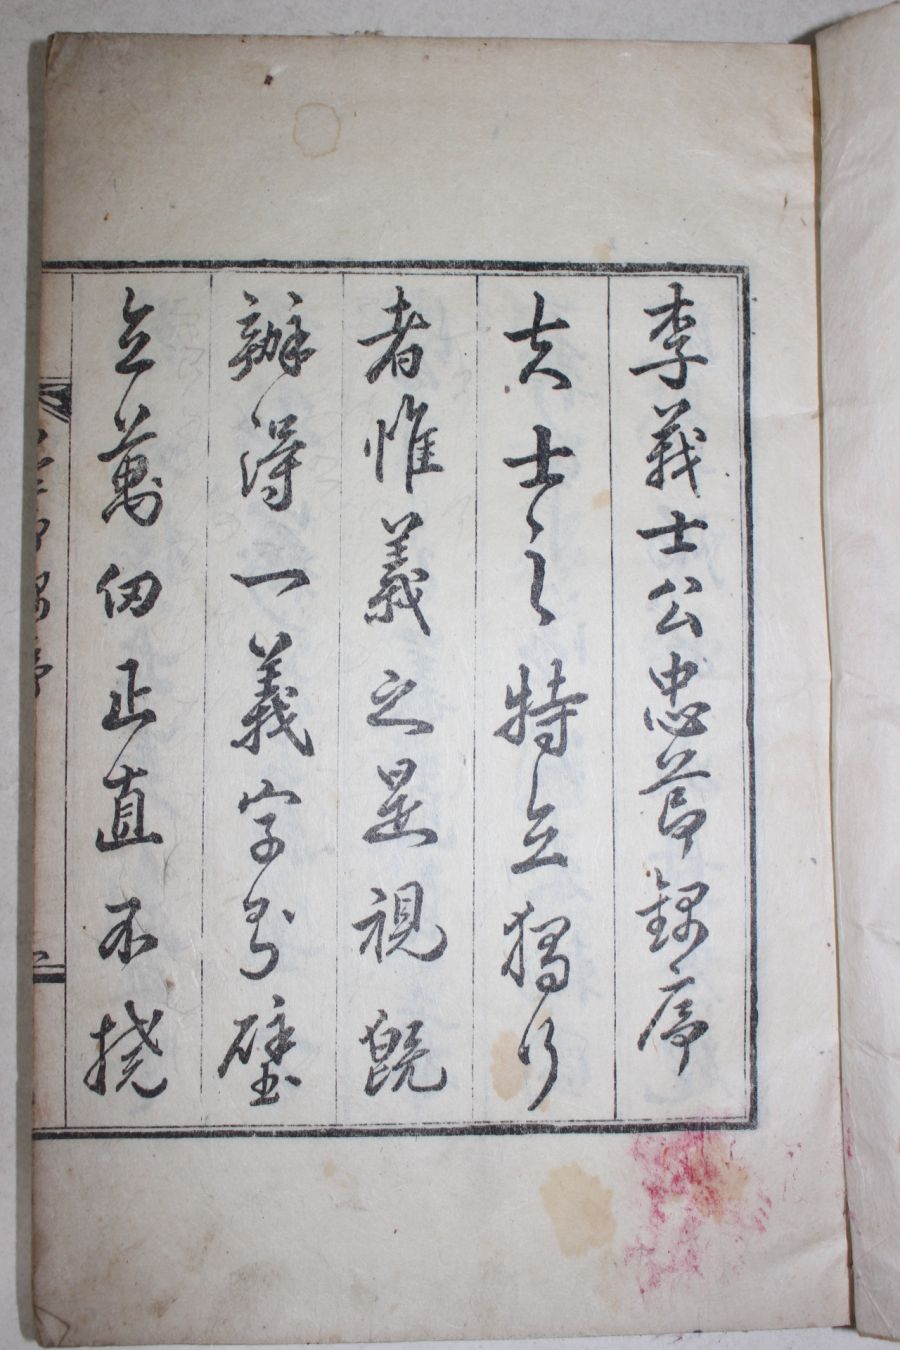 李義士公忠節錄序
夫士之特立獨行
者惟義之是視旣
辦得一義字於壁
立萬仞正直不撓